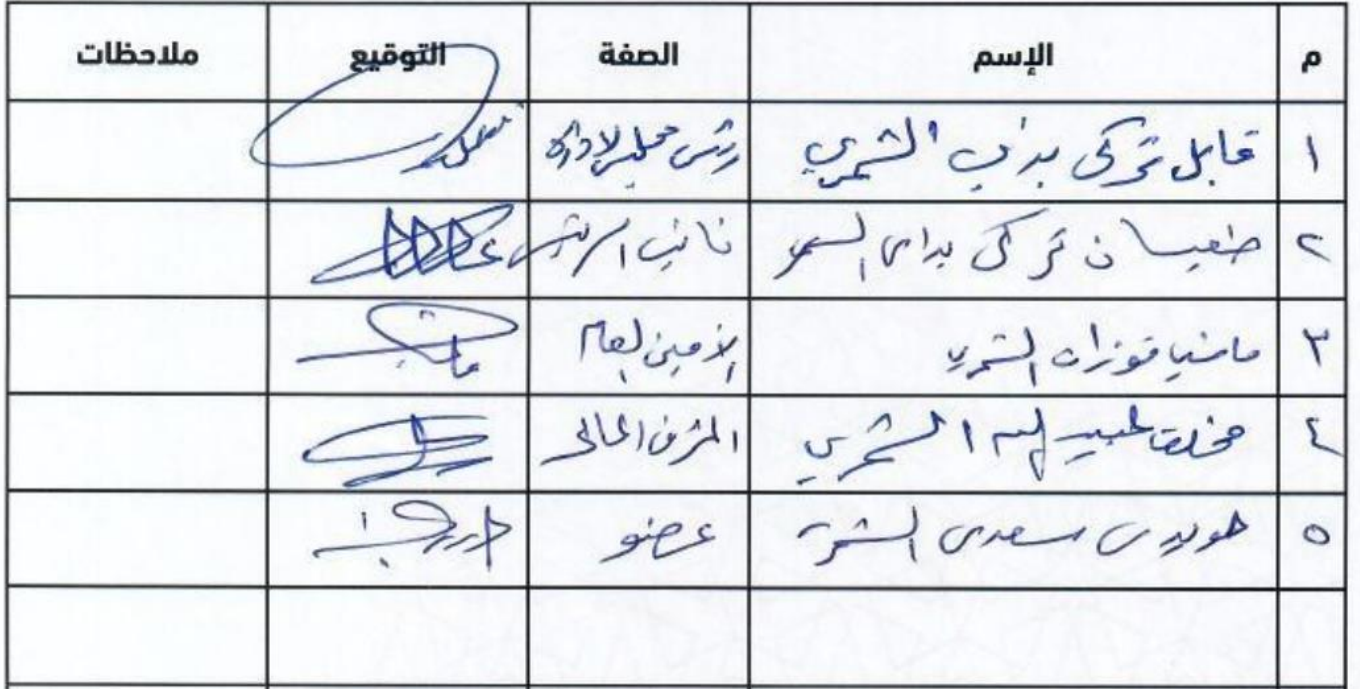 م الإسم الصفة التوقيع ملاحظات
١ قابل تركي بداي الشمري رئيس مجلس الادارة
٢ تركي بداي الشمري نائب الرئيس
٣ فوزان الشمري الأمين العام
٤ مخلف عبيد الشمري المشرف المالي
٥ هويدي سعدي الشمري عضو